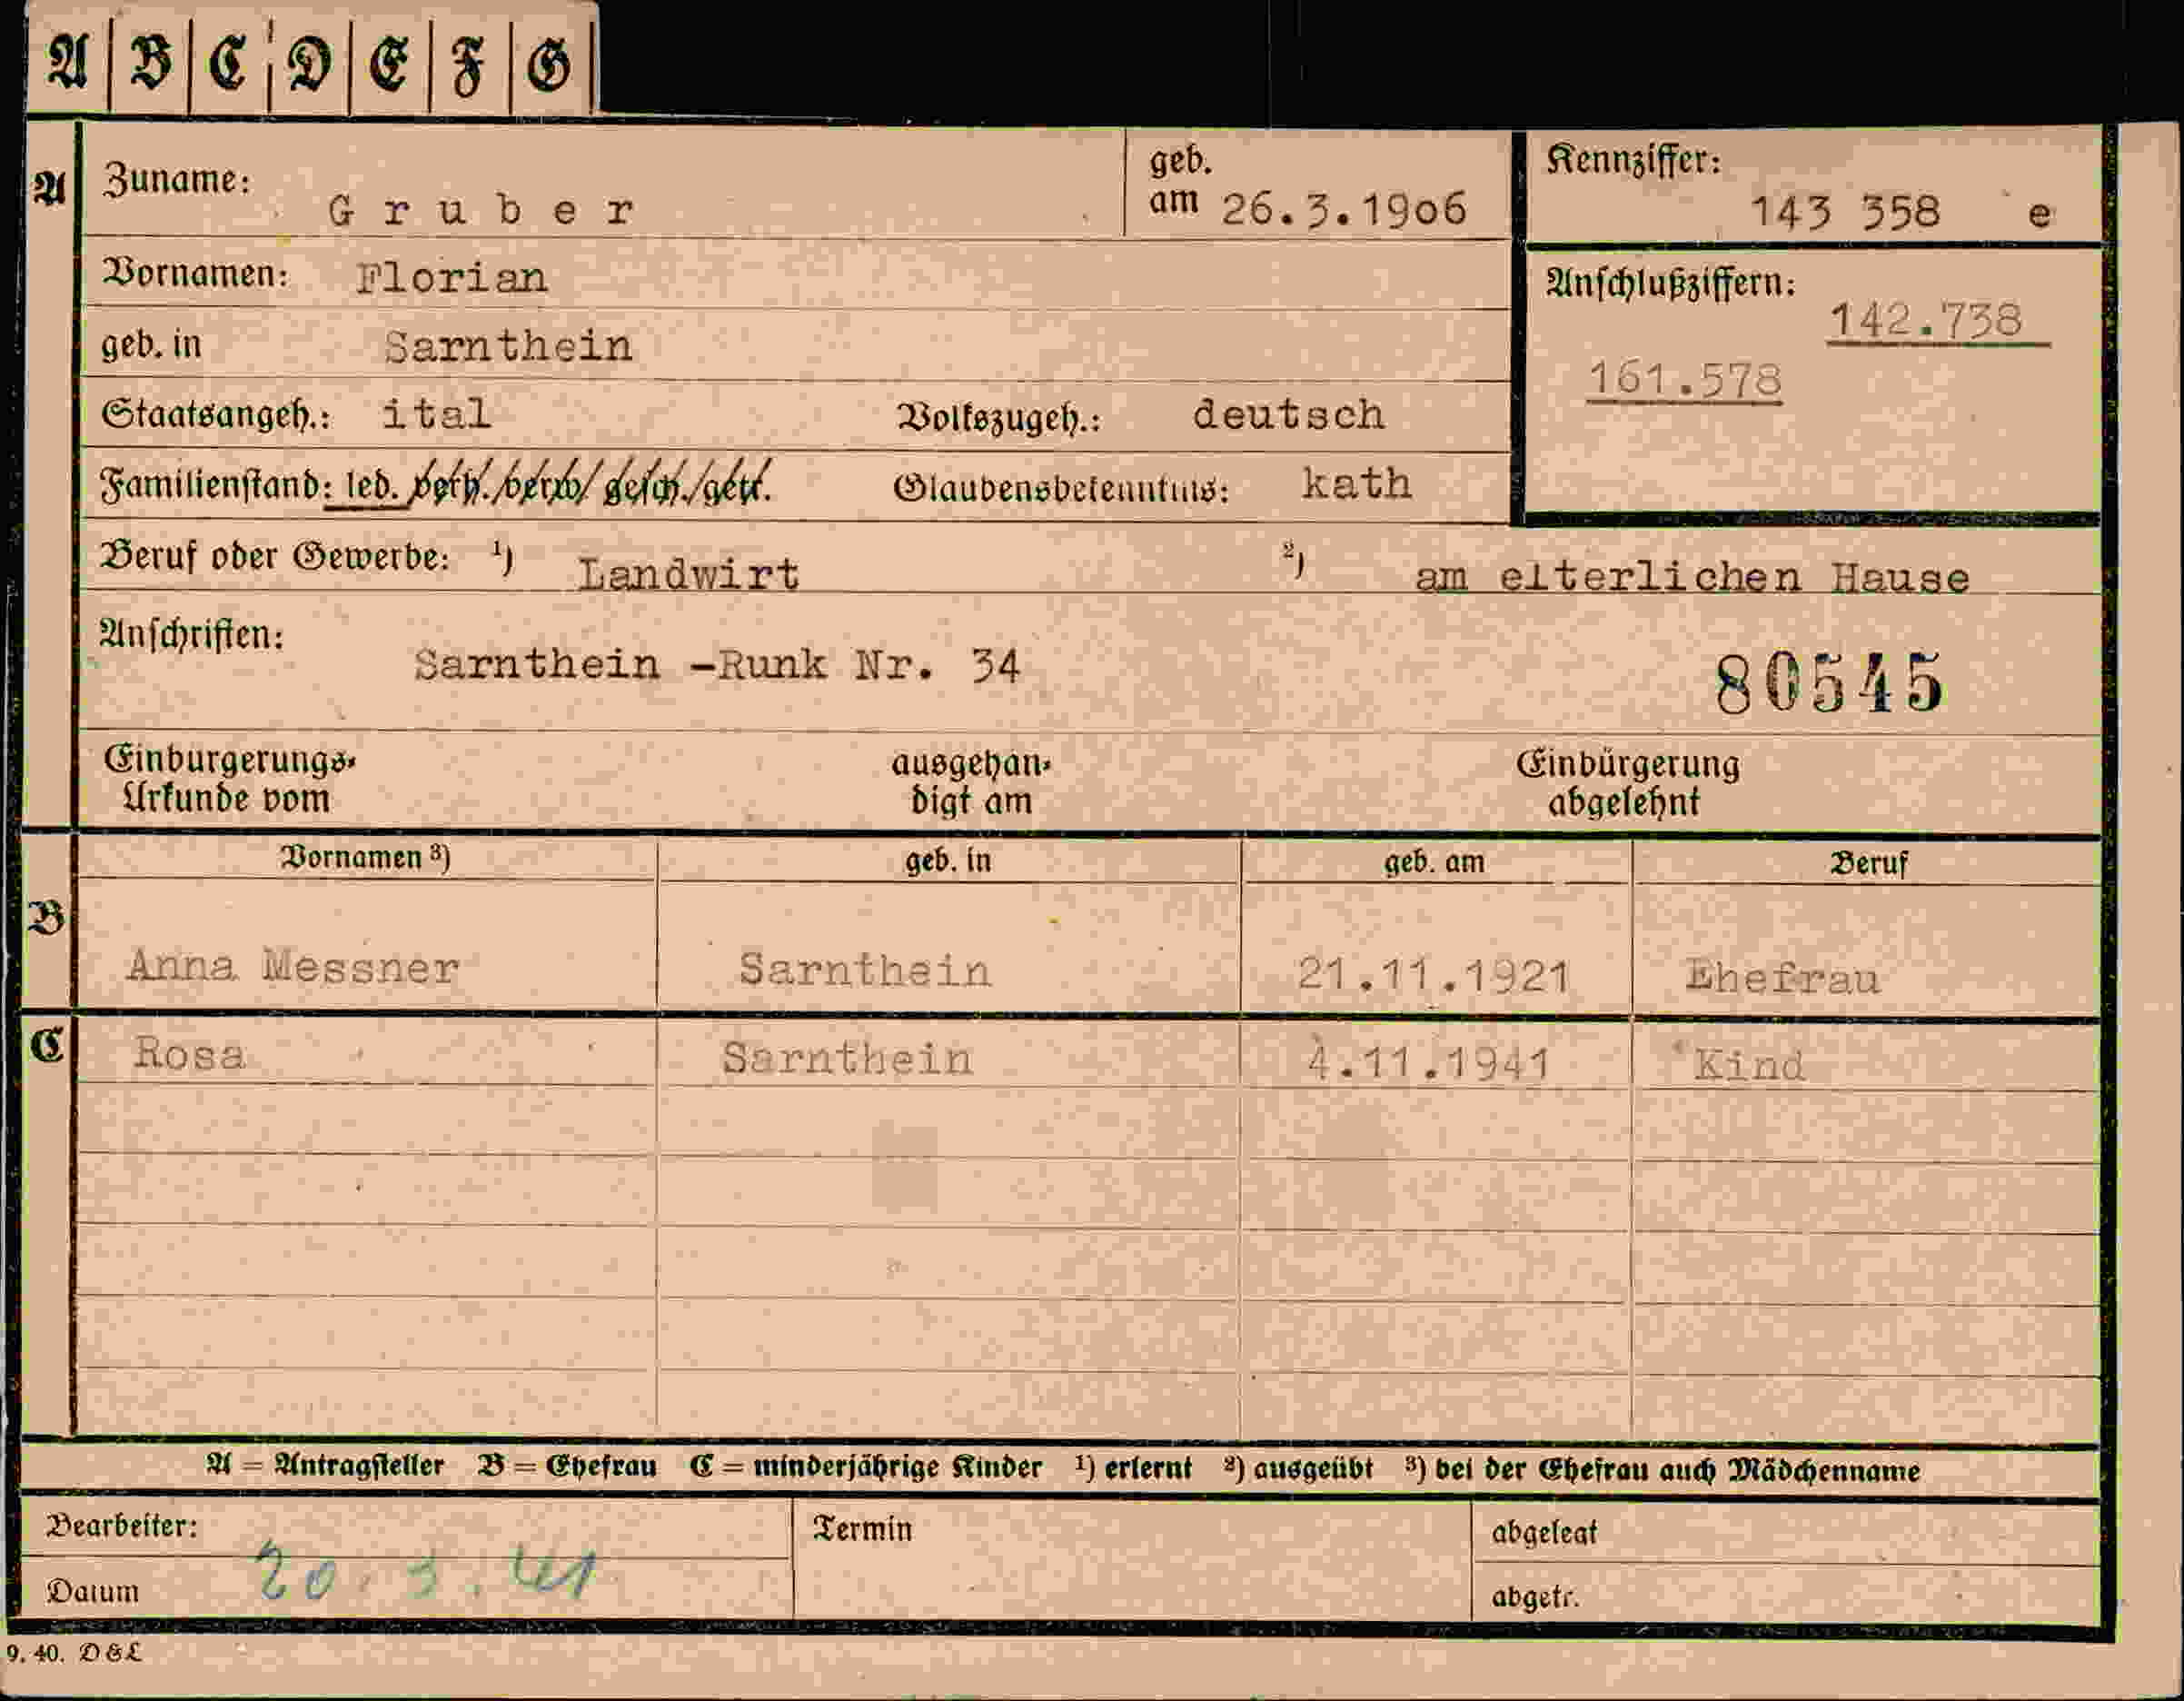 A B C D E F G
A Zuname: Gruber geb. am 26.3.1906 Kennziffer: 143 358 e
Vornamen: Florian Anschlußziffern: 142.738
geb. in Sarnthein 161.578
Staatsangeh.: ital Volkszugeh.: deutsch
Familienstand: led. verh./verw/ gesch./getr. Glaubensbekenntnis: kath
Beruf oder Gewerbe: 1) Landwirt 2) am elterlichen Hause
Anschriften: Sarnthein -Runk Nr. 34 80545
Einbürgerungs- ausgehän- Einbürgerung
Urkunde vom digt am abgelehnt
Vornamen 3) geb. in geb. am Beruf
B Anna Messner Sarnthein 21.11.1921 Ehefrau
C Rosa Sarnthein 4.11.1941 Kind
A = Antragsteller B = Ehefrau C = minderjährige Kinder 1) erlernt 2) ausgeübt 3) bei der Ehefrau auch Mädchenname
Bearbeiter: Termin abgelegt
Datum 20.3.41 abgetr.
9. 40. D&L